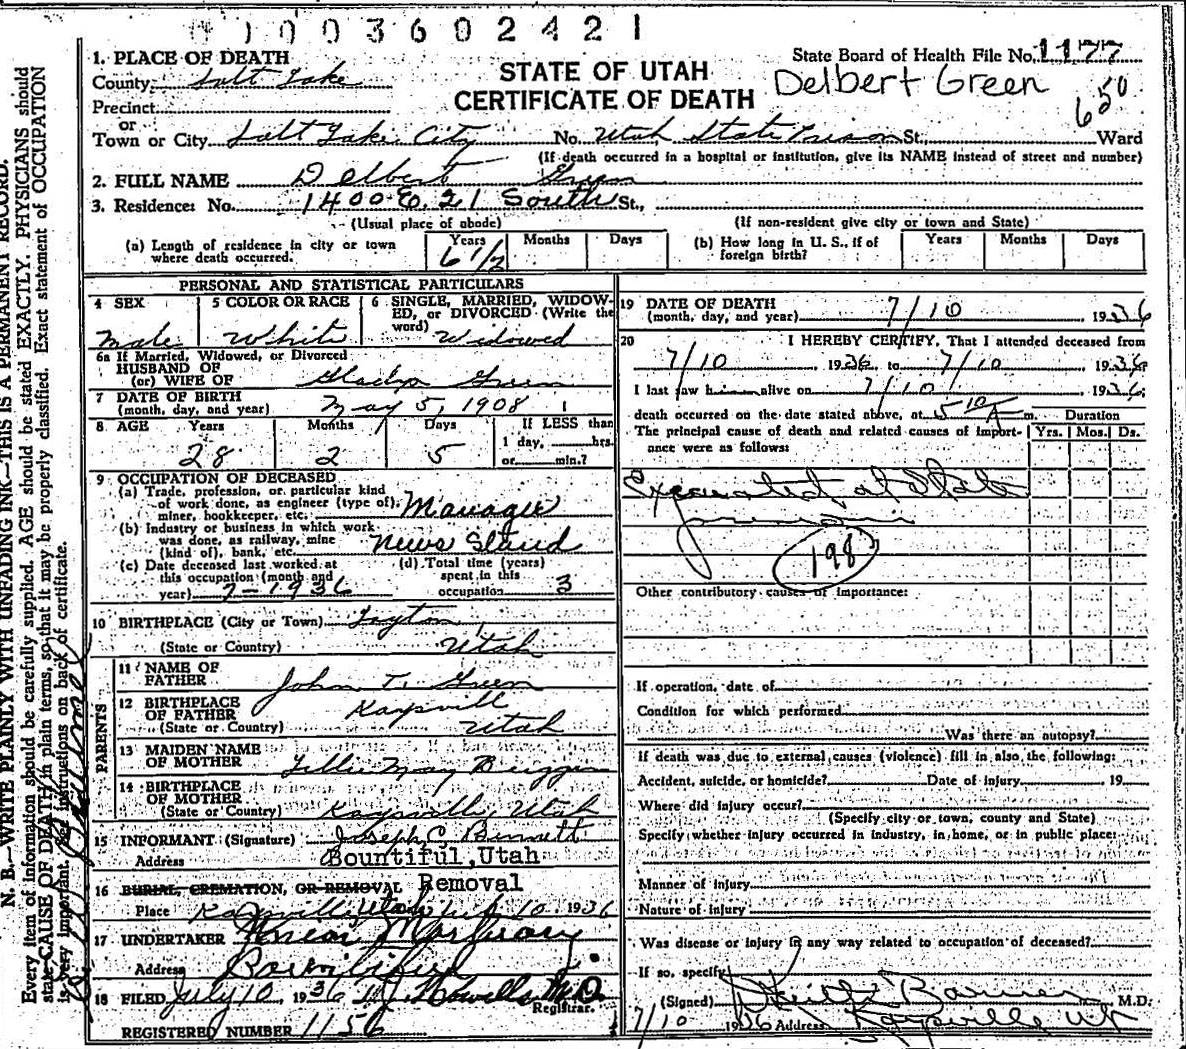 1003602421
State Board of Health File No. 1177
1. PLACE OF DEATH
County Salt Lake
STATE OF UTAH
CERTIFICATE OF DEATH
Delbert Green
650
Precinct
or
Town or City Salt Lake City No. Utah State Prison St., Ward
(If death occurred in a hospital or institution, give its NAME instead of street and number)
2. FULL NAME Delbert Green
3. Residence: No. 1400 E. 21 South St.,
(Usual place of abode) (If non-resident give city or town and State)
(a) Length of residence in city or town where death occurred. Years 6 1/2 Months Days
(b) How long in U. S., if of foreign birth? Years Months Days
PERSONAL AND STATISTICAL PARTICULARS
4 SEX Male
5 COLOR OR RACE White
6 SINGLE, MARRIED, WIDOWED, or DIVORCED (Write the word) Widowed
6a If Married, Widowed, or Divorced
HUSBAND OF
(or) WIFE OF Gladys Green
7 DATE OF BIRTH
(month, day, and year) May 5, 1908
8 AGE Years 28 Months 2 Days 5 If LESS than 1 day, hrs. or min.?
9 OCCUPATION OF DECEASED
(a) Trade, profession, or particular kind of work done, as engineer (type of), miner, bookkeeper, etc. Manager
(b) Industry or business in which work was done, as railway, mine (kind of), bank, etc. News Stand
(c) Date deceased last worked at this occupation (month and year) 7-1936
(d) Total time (years) spent in this occupation 3
10 BIRTHPLACE (City or Town) Layton,
(State or Country) Utah
PARENTS
11 NAME OF FATHER John T. Green
12 BIRTHPLACE OF FATHER Kaysvill
(State or Country) Utah
13 MAIDEN NAME OF MOTHER Lillie May
14 BIRTHPLACE OF MOTHER
(State or Country) Kaysville, Utah
15 INFORMANT (Signature) Joseph C. Burnett
Address Bountiful, Utah
16 BURIAL, CREMATION, OR REMOVAL Removal
Place Kaysville, Utah July 10 1936
17 UNDERTAKER Union Mortuary
Address Bountiful
18 FILED July 10, 1936 T.J. Howells M.D.
Registrar.
REGISTERED NUMBER 1156
19 DATE OF DEATH
(month, day, and year) 7/10 1936
20 I HEREBY CERTIFY, That I attended deceased from
7/10 1936 to 7/10 1936
I last saw him alive on 7/10 1936
death occurred on the date stated above, at 5 10 A m. Duration
The principal cause of death and related causes of importance were as follows: Yrs. Mos. Ds.
Executed at State
prison
198
Other contributory causes of importance:
If operation, date of
Condition for which performed
Was there an autopsy?
If death was due to external causes (violence) fill in also the following:
Accident, suicide, or homicide? Date of injury 19
Where did injury occur?
(Specify city or town, county and State)
Specify whether injury occurred in industry, in home, or in public place:
Manner of injury
Nature of injury
Was disease or injury in any way related to occupation of deceased?
If so, specify
(Signed) Keith Barnes M.D.
7/10 1936 Address Kaysville Ut
N. B.—WRITE PLAINLY WITH UNFADING INK—THIS IS A PERMANENT RECORD.
Every item of information should be carefully supplied. AGE should be stated EXACTLY. PHYSICIANS should
state CAUSE OF DEATH in plain terms, so that it may be properly classified. Exact statement of OCCUPATION
is very important. See instructions on back of certificate.